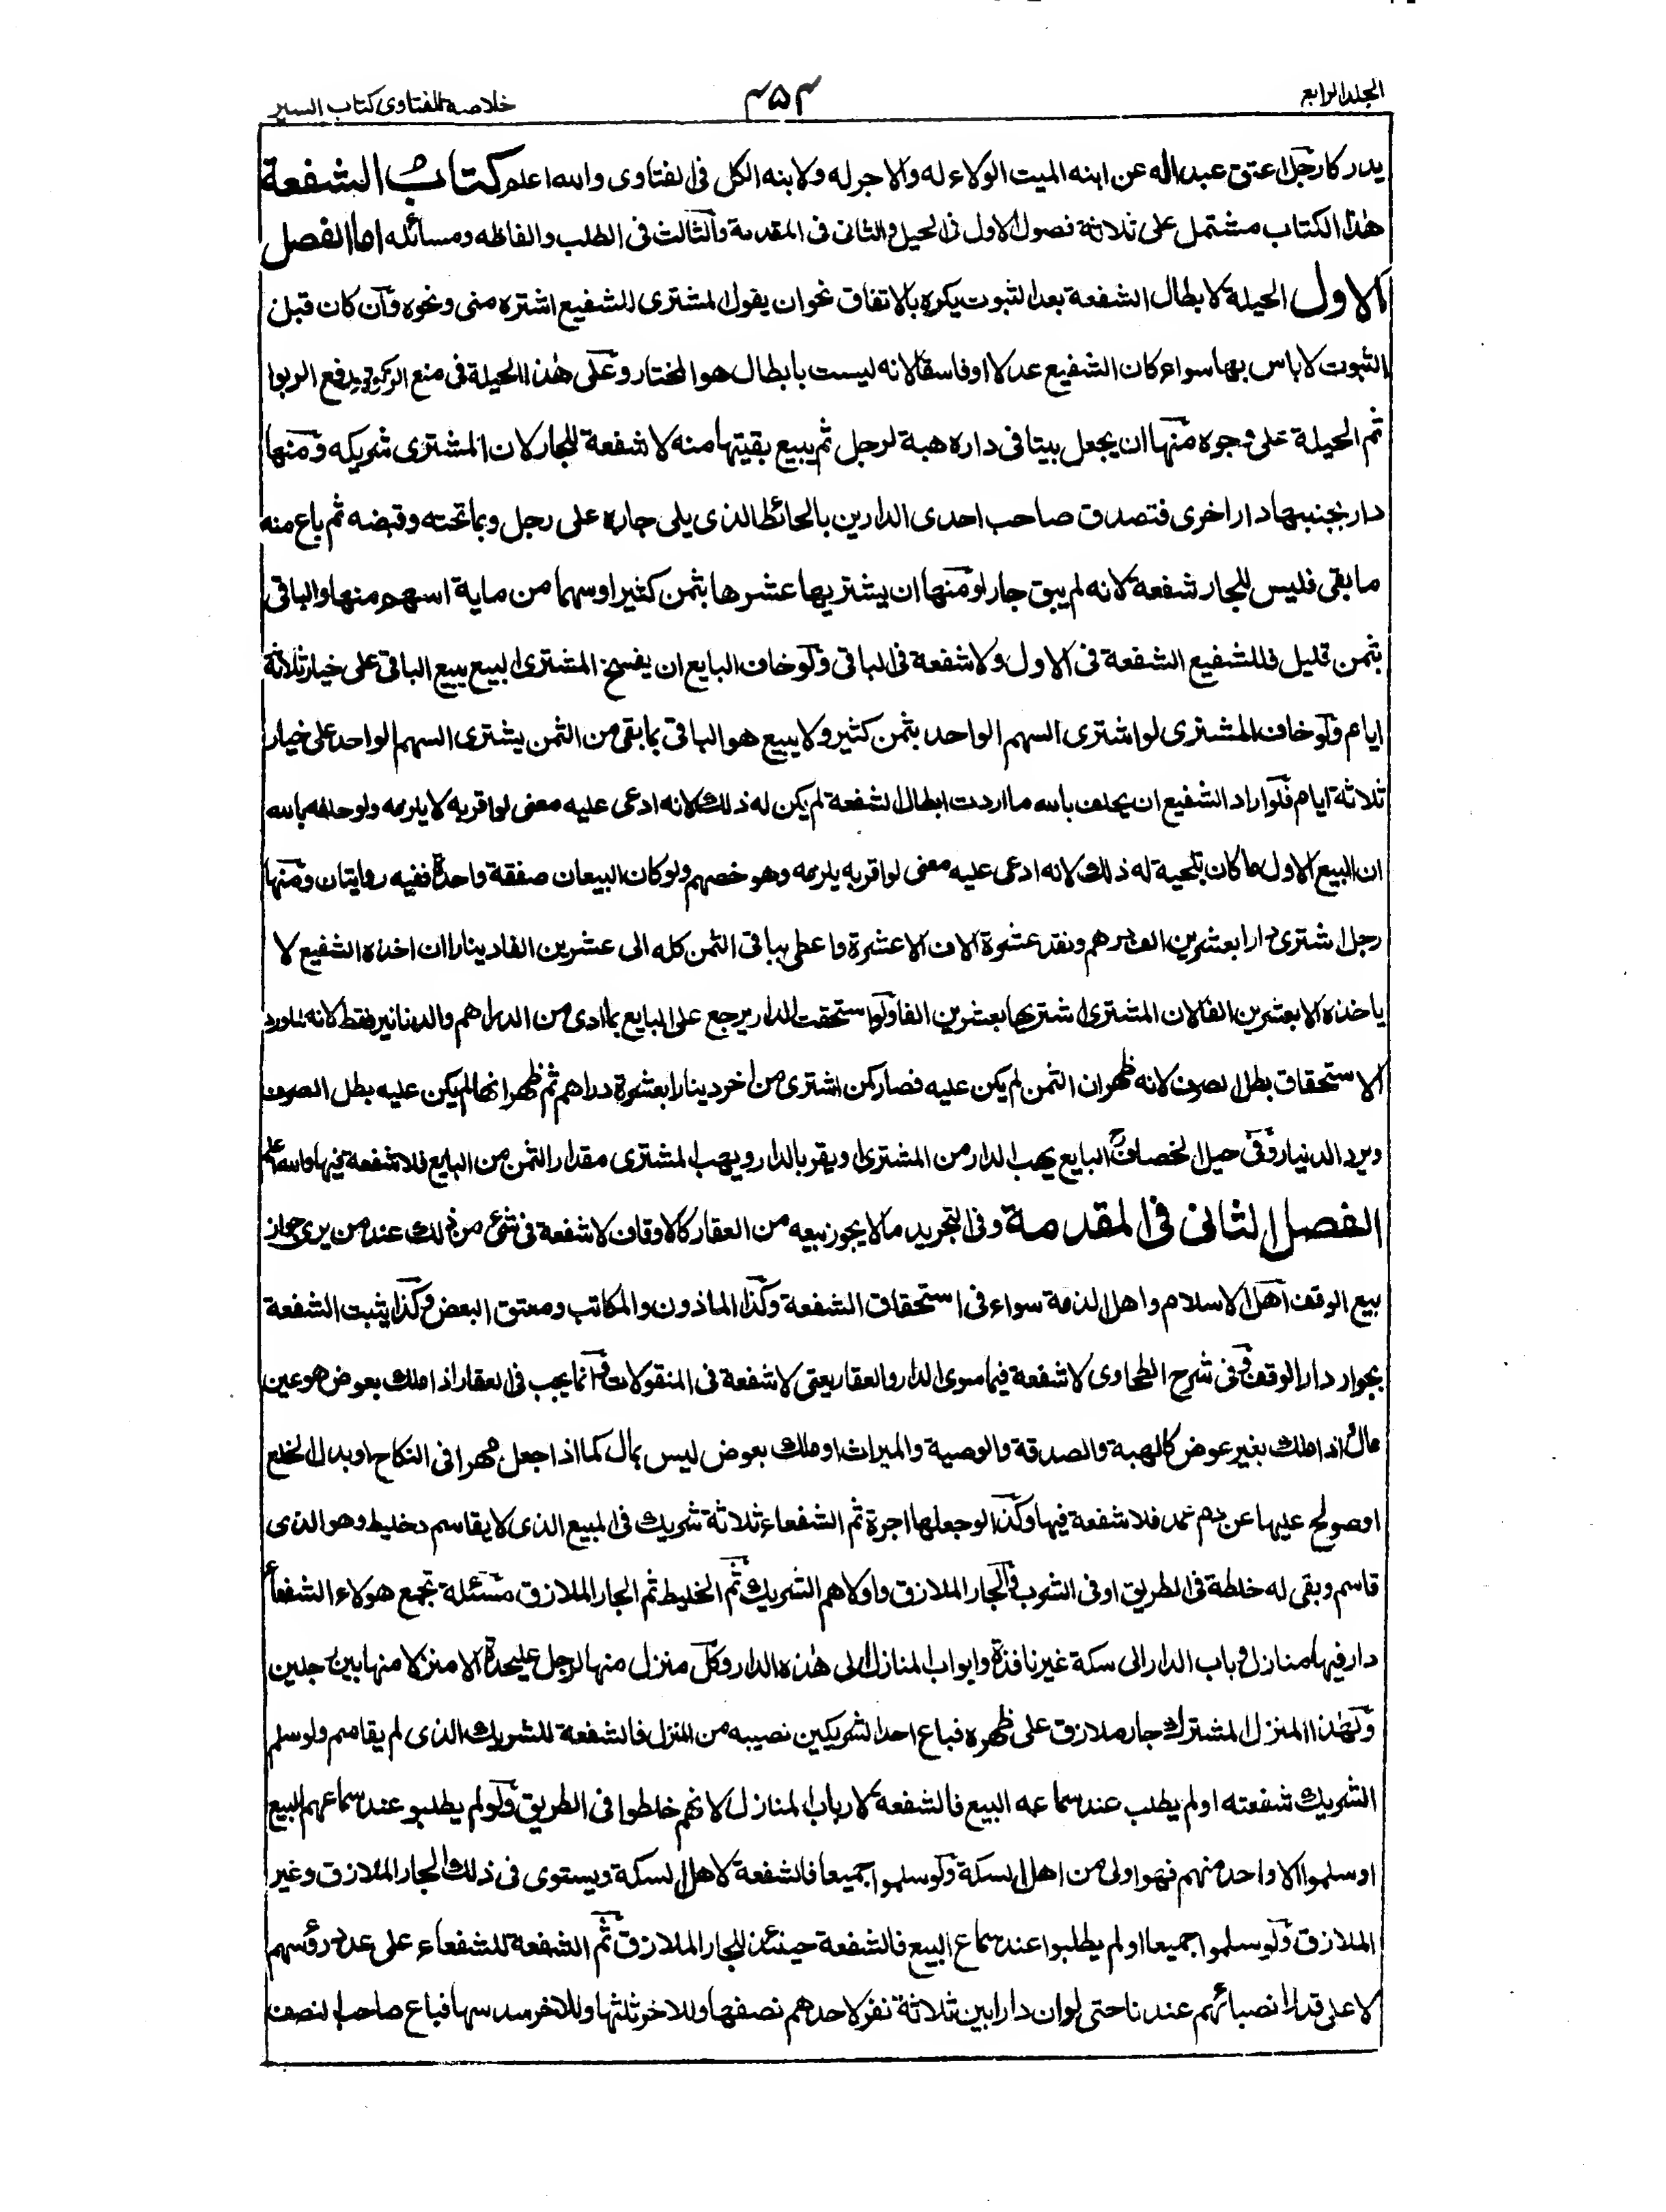 الجلد الرابع
۴۵۳
خلاصة الفتاوى كتاب السير
يدر كا رجل اعتق عبدا له عن ابنه الميت الولاء له والاجر له ولابنه الكل فى الفتاوى والله اعلم كتاب الشفعة
هذا الكتاب مشتمل على ثلاثة فصول الاول فى الحيل والثانى فى المقدمة والثالث فى الطلب والفاظه ومسائله اما الفصل
الاول الحيلة لابطال الشفعة بعد الثبوت يكره بالاتفاق نحو ان يقول المشترى للشفيع اشتره منى ونحوه وان كان قبل
الثبوت لا باس بها سواء كان الشفيع عدلا او فاسقا لانه ليست بابطال هو المختار وعلى هذا الحيلة فى منع الزكوة ودفع الربوا
ثم الحيلة على وجوه منها ان يجعل بيتا فى داره هبة لرجل ثم يبيع بقيتها منه لا شفعة للجار لان المشترى شريكه ومنها
دار بجنبها دار اخرى فتصدق صاحب احدى الدارين بالحائط الذى يلى جاره على رجل وبما تحته وقبضه ثم باع منه
ما بقى فليس للجار شفعة لانه لم يبق جار او منها ان يشترى بها عشرها بثمن كثير او سهما من ماية اسهم منها والباقى
بثمن قليل فللشفيع الشفعة فى الاول ولا شفعة فى الباقى ولو خاف البايع ان يفسخ المشترى البيع يبيع الباقى على خيار ثلاثة
ايام ولو خاف المشترى لو اشترى السهم الواحد بثمن كثير ولا يبيع هو الباقى بما بقى من الثمن يشترى السهم الواحد على خيار
ثلاثة ايام فلو اراد الشفيع ان يحلف بالله ما اردت ابطال الشفعة لم يكن له ذلك لانه ادعى عليه معنى لو اقر به لا يلزمه ولو حلفه بالله
ان البيع الاول ما كان تلجية له ذلك لانه ادعى عليه معنى لو اقر به يلزمه وهو خصهم ولو كان البيعان صفقة واحدة ففيه روايتان ومنها
رجل اشترى دارا بعشرين الف درهم ونقد عشرة الاف الا عشرة واعطى بباقى الثمن كله الى عشرين الفا دينارا ان اخذه الشفيع لا
ياخذه الا بعشرين الفا لان المشترى اشتريها بعشرين الفا ولو استحقت الدار يرجع على البايع بما ادى من الدراهم والدنانير فقط لانه لما ورد
الاستحقاق بطل الصرف لانه ظهر ان الثمن لم يكن عليه فصار كمن اشترى من اخر دينارا بعشرة دراهم ثم ظهر انها لم يكن عليه بطل الصرف
ويرد الدنيار وفى حيل الخصاف البايع يهب الدار من المشترى او يقر بالدار ويهب المشترى مقدار الثمن من البايع فلا شفعة فيها والله اعلم
الفصل الثانى فى المقدمة وفى التجريد ما لا يجوز بيعه من العقار كالاوقاف لا شفعة فى شئ من ذلك عند من يرى جواز
بيع الوقف اهل الاسلام واهل الذمة سواء فى استحقاق الشفعة وكذا الماذون والمكاتب ومعتق البعض وكذا يثبت الشفعة
بجوار دار الوقف وفى شرح الطحاوى لا شفعة فيما سوى الدار والعقار يعنى لا شفعة فى المنقولات وانما يجب فى العقار اذا ملك بعوض هو عين
مال اذا ملك بغير عوض كالهبة والصدقة والوصية والميراث او ملك بعوض ليس بمال كما اذا جعل مهرا فى النكاح او بدل الخلع
او صولح عليها عن دم عمد فلا شفعة فيها وكذا لو جعلها اجرة ثم الشفعاء ثلاثة شريك فى المبيع الذى لا يقاسم وخليط وهو الذى
قاسم وبقى له خلطة فى الطريق او فى الشرب والجار الملازق واولاهم الشريك ثم الخليط ثم الجار الملازق مسئلة تجمع هولاء الشفعاء
دار فيها منازل وباب الدار الى سكة غير نافذة وابواب المنازل الى هذه الدار وكل منزل منها لرجل عليحدة الا منزلا منها بين رجلين
ولهذا المنزل المشترك جار ملازق على ظهره فباع احد الشريكين نصيبه من المنزل فالشفعة للشريك الذى لم يقاسم ولو سلم
الشريك شفعته او لم يطلب عند سماعه البيع فالشفعة لارباب المنازل لانهم خلطوا فى الطريق ولو لم يطلبو عند سماعهم البيع
او سلموا الا واحد منهم فهو اولى من اهل السكة ولو سلموا جميعا فالشفعة لاهل السكة ويستوى فى ذلك الجار الملازق وغير
الملازق ولو سلموا جميعا او لم يطلبوا عند سماع البيع فالشفعة حينئذ للجار الملازق ثم الشفعة للشفعاء على عدد رؤسهم
لا على قدر انصبائهم عندنا حتى لو ان دارا بين ثلاثة نفر لاحدهم نصفها وللاخر ثلثها وللاخر سدسها فباع صاحب النصف